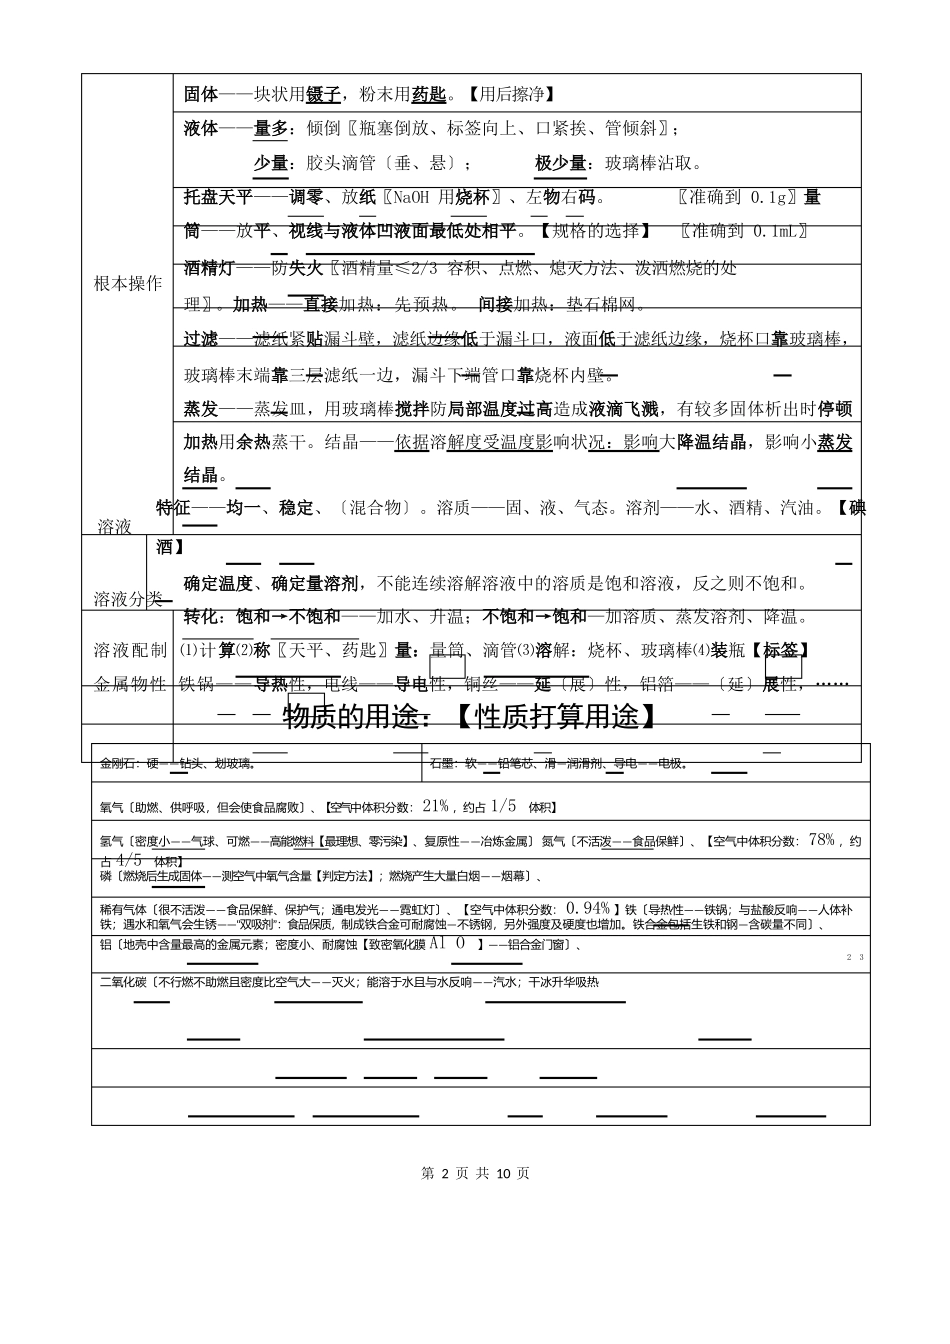 固体——块状用镊子，粉末用药匙。【用后擦净】
液体——量多：倾倒〖瓶塞倒放、标签向上、口紧挨、管倾斜〗；
少量：胶头滴管〔垂、悬〕； 极少量：玻璃棒沾取。
托盘天平——调零、放纸〖NaOH 用烧杯〗、左物右码。 〖准确到 0.1g〗量
筒——放平、视线与液体凹液面最低处相平。【规格的选择】 〖准确到 0.1mL〗
酒精灯——防失火〖酒精量≤2/3 容积、点燃、熄灭方法、泼洒燃烧的处
根本操作
理〗。加热——直接加热：先预热。 间接加热：垫石棉网。
过滤——滤纸紧贴漏斗壁，滤纸边缘低于漏斗口，液面低于滤纸边缘，烧杯口靠玻璃棒，
玻璃棒末端靠三层滤纸一边，漏斗下端管口靠烧杯内壁。
蒸发——蒸发皿，用玻璃棒搅拌防局部温度过高造成液滴飞溅，有较多固体析出时停顿
加热用余热蒸干。结晶——依据溶解度受温度影响状况：影响大降温结晶，影响小蒸发
结晶。
特征——均一、稳定、〔混合物〕。溶质——固、液、气态。溶剂——水、酒精、汽油。【碘
溶液
酒】
确定温度、确定量溶剂，不能连续溶解溶液中的溶质是饱和溶液，反之则不饱和。
溶液分类
转化：饱和→不饱和——加水、升温；不饱和→饱和—加溶质、蒸发溶剂、降温。
溶液配制 ⑴计算⑵称〖天平、药匙〗量：量筒、滴管⑶溶解：烧杯、玻璃棒⑷装瓶【标签】
金属物性 铁锅——导热性，电线——导电性，铜丝——延〔展〕性，铝箔——〔延〕展性，……
物质的用途：【性质打算用途】
金刚石：硬——钻头、划玻璃。 石墨：软——铅笔芯、滑—润滑剂、导电——电极。
氧气〔助燃、供呼吸，但会使食品腐败〕、【空气中体积分数：21%，约占 1/5 体积】
氢气〔密度小——气球、可燃——高能燃料【最理想、零污染】、复原性——冶炼金属〕氮气〔不活泼——食品保鲜〕、【空气中体积分数：78%，约
占 4/5 体积】
磷〔燃烧后生成固体——测空气中氧气含量【判定方法】；燃烧产生大量白烟——烟幕〕、
稀有气体〔很不活泼——食品保鲜、保护气；通电发光——霓虹灯〕、【空气中体积分数：0.94%】铁〔导热性——铁锅；与盐酸反响——人体补
铁；遇水和氧气会生锈——“双吸剂”：食品保质，制成铁合金可耐腐蚀—不锈钢，另外强度及硬度也增加。铁合金包括生铁和钢—含碳量不同〕、
铝〔地壳中含量最高的金属元素；密度小、耐腐蚀【致密氧化膜 Al O 】——铝合金门窗〕、
2 3
二氧化碳〔不行燃不助燃且密度比空气大——灭火；能溶于水且与水反响——汽水；干冰升华吸热
第 2 页 共 10 页